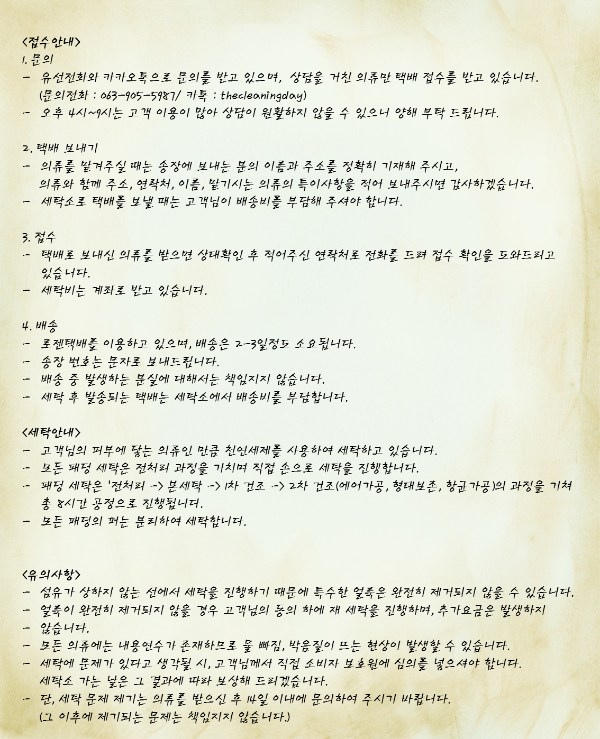 <접수안내>
1. 문의
- 유선전화와 카카오톡으로 문의를 받고 있으며, 상담을 거친 의류만 택배 접수를 받고 있습니다.
(문의전화 : 063-905-5987/ 카톡 : thecleaningday)
- 오후 4시~9시는 고객 이용이 많아 상담이 원활하지 않을 수 있으니 양해 부탁 드립니다.
2. 택배 보내기
- 의류를 맡겨주실 때는 송장에 보내는 분의 이름과 주소를 정확히 기재해 주시고,
의류와 함께 주소, 연락처, 이름, 맡기시는 의류의 특이사항을 적어 보내주시면 감사하겠습니다.
- 세탁소로 택배를 보낼 때는 고객님이 배송비를 부담해 주셔야 합니다.
3. 접수
- 택배로 보내신 의류를 받으면 상태확인 후 적어주신 연락처로 전화를 드려 접수 확인을 도와드리고
있습니다.
- 세탁비는 계좌로 받고 있습니다.
4. 배송
- 로젠택배를 이용하고 있으며, 배송은 2~3일정도 소요됩니다.
- 송장 번호는 문자로 보내드립니다.
- 배송 중 발생하는 분실에 대해서는 책임지지 않습니다.
- 세탁 후 발송되는 택배는 세탁소에서 배송비를 부담합니다.
<세탁안내>
- 고객님의 피부에 닿는 의류인 만큼 천연세제를 사용하여 세탁하고 있습니다.
- 모든 패딩 세탁은 전처리 과정을 거치며 직접 손으로 세탁을 진행합니다.
- 패딩 세탁은 '전처리 -> 본세탁 -> 1차 건조 -> 2차 건조(에어가공, 형태보존, 항균가공)의 과정을 거쳐
총 8시간 공정으로 진행됩니다.
- 모든 패딩의 퍼는 분리하여 세탁합니다.
<유의사항>
- 섬유가 상하지 않는 선에서 세탁을 진행하기 때문에 특수한 얼룩은 완전히 제거되지 않을 수 있습니다.
- 얼룩이 완전히 제거되지 않을 경우 고객님의 동의 하에 재 세탁을 진행하며, 추가요금은 발생하지
- 않습니다.
- 모든 의류에는 내용연수가 존재하므로 물 빠짐, 박음질이 뜨는 현상이 발생할 수 있습니다.
- 세탁에 문제가 있다고 생각될 시, 고객님께서 직접 소비자 보호원에 심의를 넣으셔야 합니다.
세탁소 가는 날은 그 결과에 따라 보상해 드리겠습니다.
- 단, 세탁 문제 제기는 의류를 받으신 후 14일 이내에 문의하여 주시기 바랍니다.
(그 이후에 제기되는 문제는 책임지지 않습니다.)